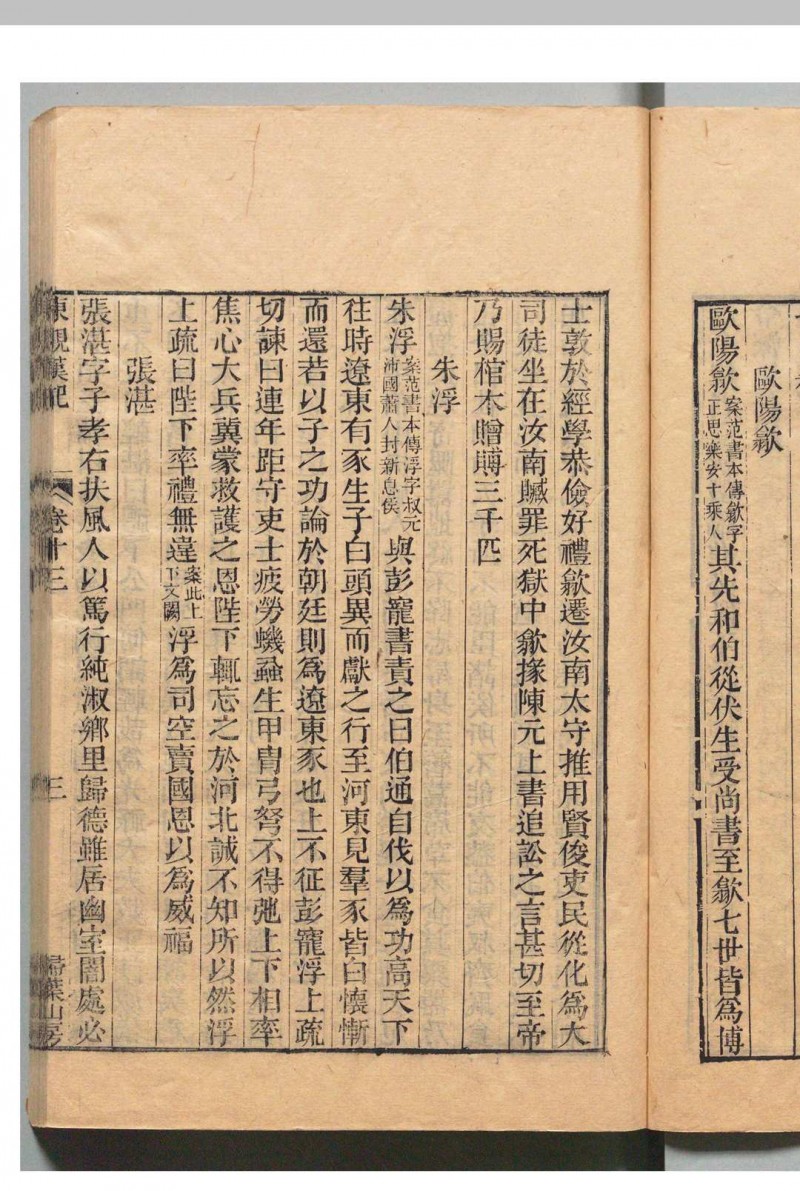 歐陽歙
歐陽歙案范書本傳歙字正思樂安千乘人其先和伯從伏生受尚書至歙七世皆為博
士敦於經學恭儉好禮歙遷汝南太守推用賢俊吏民從化為大
司徒坐在汝南贓罪死獄中歙掾陳元上書追訟之言甚切至帝
乃賜棺木贈賻三千匹
朱浮
朱浮案范書本傳浮字叔元沛國蕭人封新息侯與彭寵書責之曰伯通自伐以為功高天下
往時遼東有豕生子白頭異而獻之行至河東見羣豕皆白懷慚
而還若以子之功論於朝廷則為遼東豕也上不征彭寵浮上疏
切諫曰連年距守吏士疲勞蟣蝨生甲冑弓弩不得弛上下相率
焦心大兵冀蒙救護之恩陛下輒忘之於河北誠不知所以然浮
上疏曰陛下率禮無違案此上下文闕浮為司空賣國恩以為威福
張湛
張湛字子孝右扶風人以篤行純淑鄉里歸德雖居幽室闇處必
東觀漢記 卷十三 三 掃葉山房